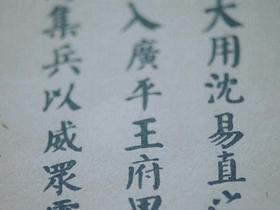 大用沈易直
入廣平王府
集兵以威眾